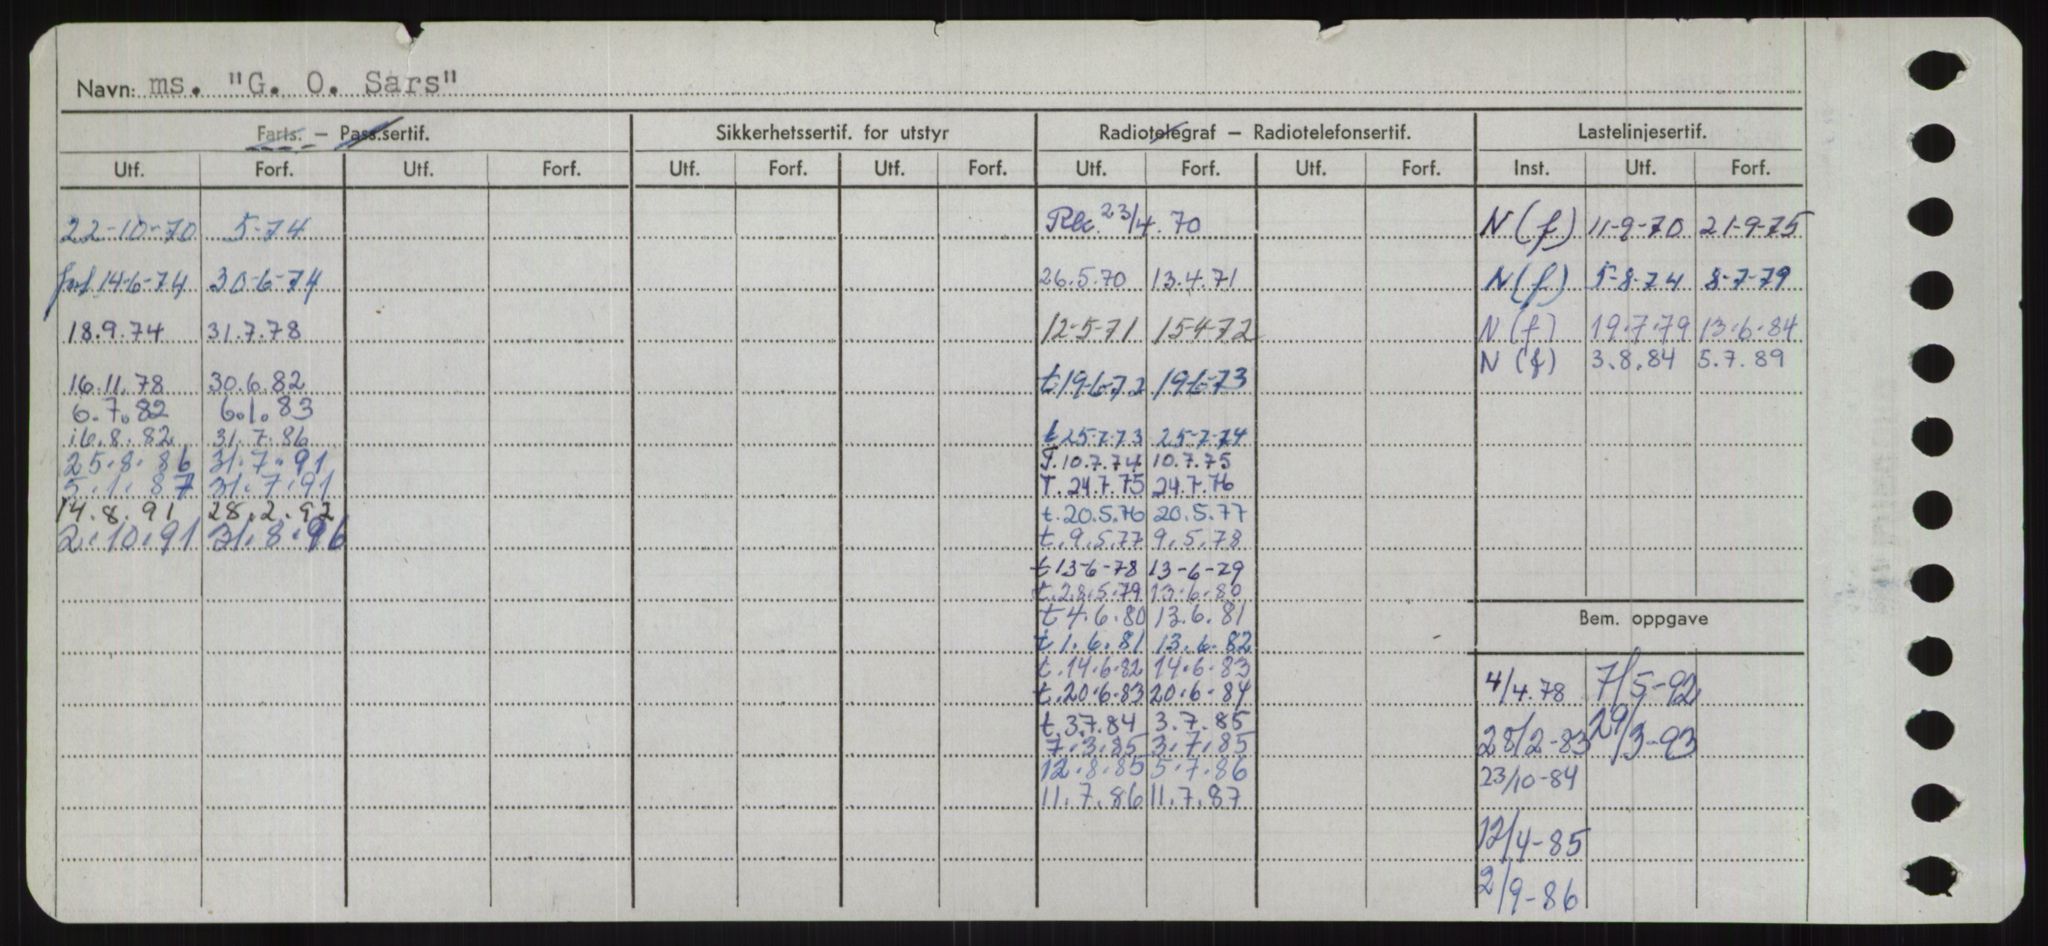 Navn: ms. "G. O. Sars"
Farts. – Pass.sertif. Sikkerhetssertif. for utstyr Radiotelegraf – Radiotelefonsertif. Lastelinjesertif.
Utf. Forf. Utf. Forf. Utf. Forf. Utf. Forf. Utf. Forf. Utf. Forf. Inst. Utf. Forf.
22-10-70 5-74
forl 14-6-74 30-6-74
18.9.74 31.7.78
16.11.78 30.6.82
6.7.82 6.1.83
16.8.82 31.7.86
25.8.86 31.7.91
5.1.87 31.7.91
14.8.91 28.2.92
2.10.91 31.8.96
23/4.70
26.5.70 13.4.71
12-5-71 15-4-72
t.19-6-72 19-6-73
t 25-7-73 25-7-74
T.10.7.74 10.7.75
T.24.7.75 24.7.76
t.20.5.76 20.5.77
t.9.5.77 9.5.78
t 13-6-78 13-6-79
t.28.5.79 13.6.80
t 4.6.80 13.6.81
t 1.6.81 13.6.82
t.14.6.82 14.6.83
t.20.6.83 20.6.84
t.3.7.84 3.7.85
7.3.85 3.7.85
12.8.85 5.7.86
11.7.86 11.7.87
N (f) 11-9-70 21-9-75
N (f) 5-8-74 8-7-79
N (f) 19.7.79 13.6.84
N (f) 3.8.84 5.7.89
Bem. oppgave
4/4.78 7/5-92
28/2-83 29/3-93
23/10-84
12/4-85
2/9-86